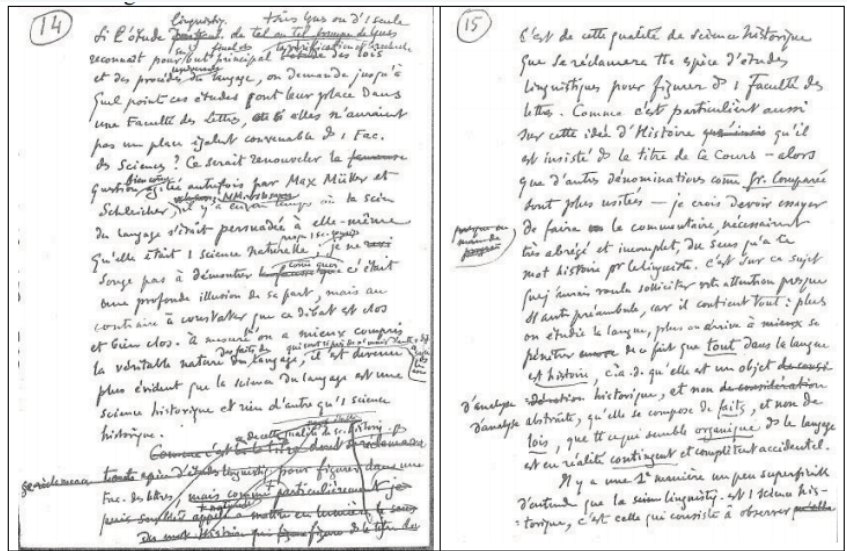 14
linguistiq.
Si l'étude
reconnaît pour but principal des lois
et des procédés du langage, on demande jusqu'à
quel point ces études ont leur place dans
une Faculté des Lettres, si elles n'auraient
pas un place également convenable ds 1 Fac.
ds Sciences ? Ce serait renouveler la
question agitée autrefois par Max Müller et
Schleicher, il y a eu un temps où la scien
du langage s'était persuadée à elle-même
qu'elle était 1 science naturelle, je ne
songe pas à démontrer c'était
une profonde illusion de sa part, mais au
contraire à constater que ce débat est clos
et bien clos. à mesure on a mieux compris
la véritable nature du langage, il est devenu
plus évident que la science du langage est une
science historique et rien d'autre qu'1 science
historique.
de cette qualité de sc.
Comme c'est le titre dont se réclamean
se réclamean espèce d'études linguistiq pour figurer dans une
Fac. des lettres, mais comme particulièrement je
puis appelé à mettre en lumière le sens
du mot histoire qui figure ds le titre des
15
C'est de cette qualité de science historique
que se réclamera tte espèce d'études
linguistiques pour figurer ds 1 Faculté des
lettres. Comme c'est particulièrt aussi
sur cette idée d'Histoire qu'il
est insisté ds le titre de ce Cours – alors
que d'autres dénominations come gr. comparée
sont plus usitées – je crois devoir essayer
de faire le commentaire, nécessairemt
très abrégé et incomplet, du sens qu'a ce
mot histoire pr le linguiste. C'est sur ce sujet
que j'aurais voulu solliciter votre attention presque
sans préambule, car il contient tout : plus
on étudie la langue, plus on arrive à se
pénétrer de ce fait que tout dans la langue
est histoire, c.à.d. qu'elle est un objet
d'analyse historique, et non de considération
d'analyse abstraite, qu'elle se compose de faits, et non de
lois, que tt ce qui semble organique ds le langage
est en réalité contingent et complètemt accidentel.
Il y a une 1e manière un peu superficielle
d'entendre que la scien linguistiq. est 1 science his-
torique, c'est celle qui consiste à observer qu'elle